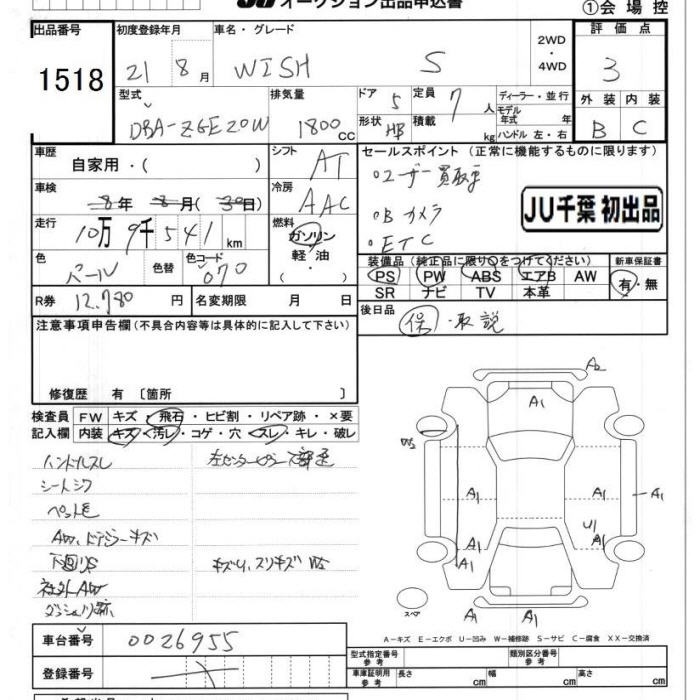 JU オークション出品申込書
①会場控
出品番号 1518
初度登録年月 21 8月
車名・グレード WISH S
2WD・4WD
評価点 3
外装 B 内装 C
型式 DBA-ZGE20W
排気量 1800 CC
ドア 5 形状 HB
定員 7人 積載 kg
ディーラー・並行
モデル年式 年
ハンドル 左・右
車歴 自家用・( )
シフト AT
車検 8年 8月 (30日)
冷房 AAC
走行 10万9千541km
燃料 ガソリン 軽油 ( ・ )
色 パール 色替 色コード 070
R券 12.780円
名変期限 月 日
セールスポイント (正常に機能するものに限ります)
・ユーザー買取車
・Bカメラ
・ETC
JU千葉 初出品
装備品 (純正品に限り○をつけてください)
PS PW ABS エアB AW
SR ナビ TV 本革
新車保証書 有・無
後日品 保・取説
注意事項申告欄 (不具合内容等は具体的に記入して下さい)
修復歴 有 〔箇所 〕
検査員記入欄 FW キズ・飛石・ヒビ割・リペア跡・×要
内装 キズ・汚レ・コゲ・穴・スレ・キレ・破レ
ハンドルスレ
シートシワ
ペット毛
AW、ドアミラーキズ
下回りS
キズU、スリキズ W2
社外AW
A2
A1
W2
A1
A1
A1
A1
U1
A1
A1
A1
A1
A1
スペア
A-キズ E-エクボ U-凹み W-補修跡 S-サビ C-腐食 XX-交換済
車台番号 0026955
登録番号
型式指定番号 参考
類別区分番号 参考
車庫証明用 参考 長さ cm 幅 cm 高さ cm